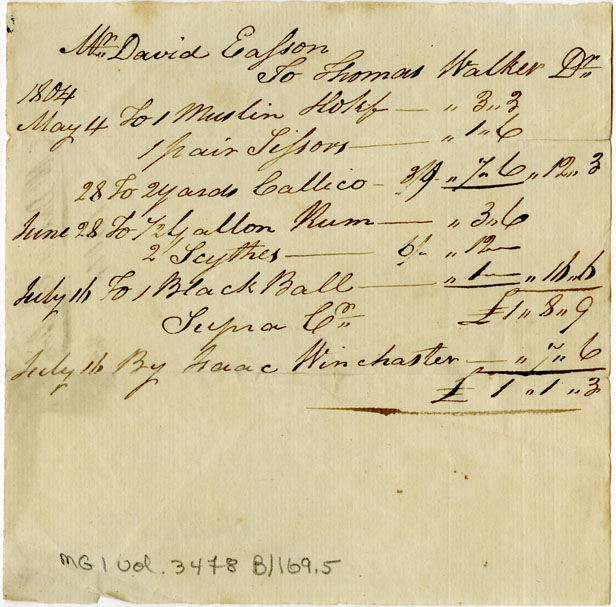 Mr. David Easson
To Thomas Walker Dr.
1804
May 4 To 1 Muslin Hdkf — " 3 " 3
1 pair Sissors — " 1 " 6
28 To 2 yards Callico - 3/9 " 7 " 6 " 12 " 3
June 28 To 1/2 Gallon Rum — " 3 " 6
2 Scythes — 6/- " 12 —
July 16 To 1 Black Ball — " 1 — " 16 " 6
£1 " 8 " 9
Supra Cr.
July 16 By Isaac Winchester — " 7 " 6
£ 1 " 1 " 3
MG 1 Vol. 3478 B/169.5